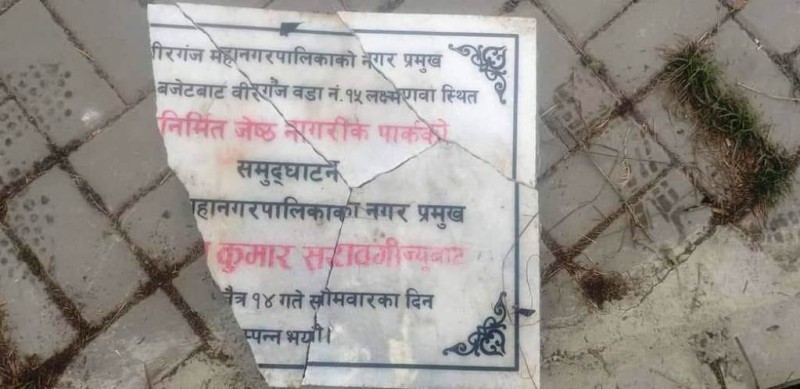 वीरगंज महानगरपालिकाको नगर प्रमुख
बजेटबाट वीरगंज वडा नं. १५ लक्ष्मणवा स्थित
निर्मित जेष्ठ नागरीक पार्कको
समुद्घाटन
महानगरपालिकाका नगर प्रमुख
कुमार सरावगीज्यूबाट
चैत्र १४ गते सोमवारका दिन
म्पन्न भयो।